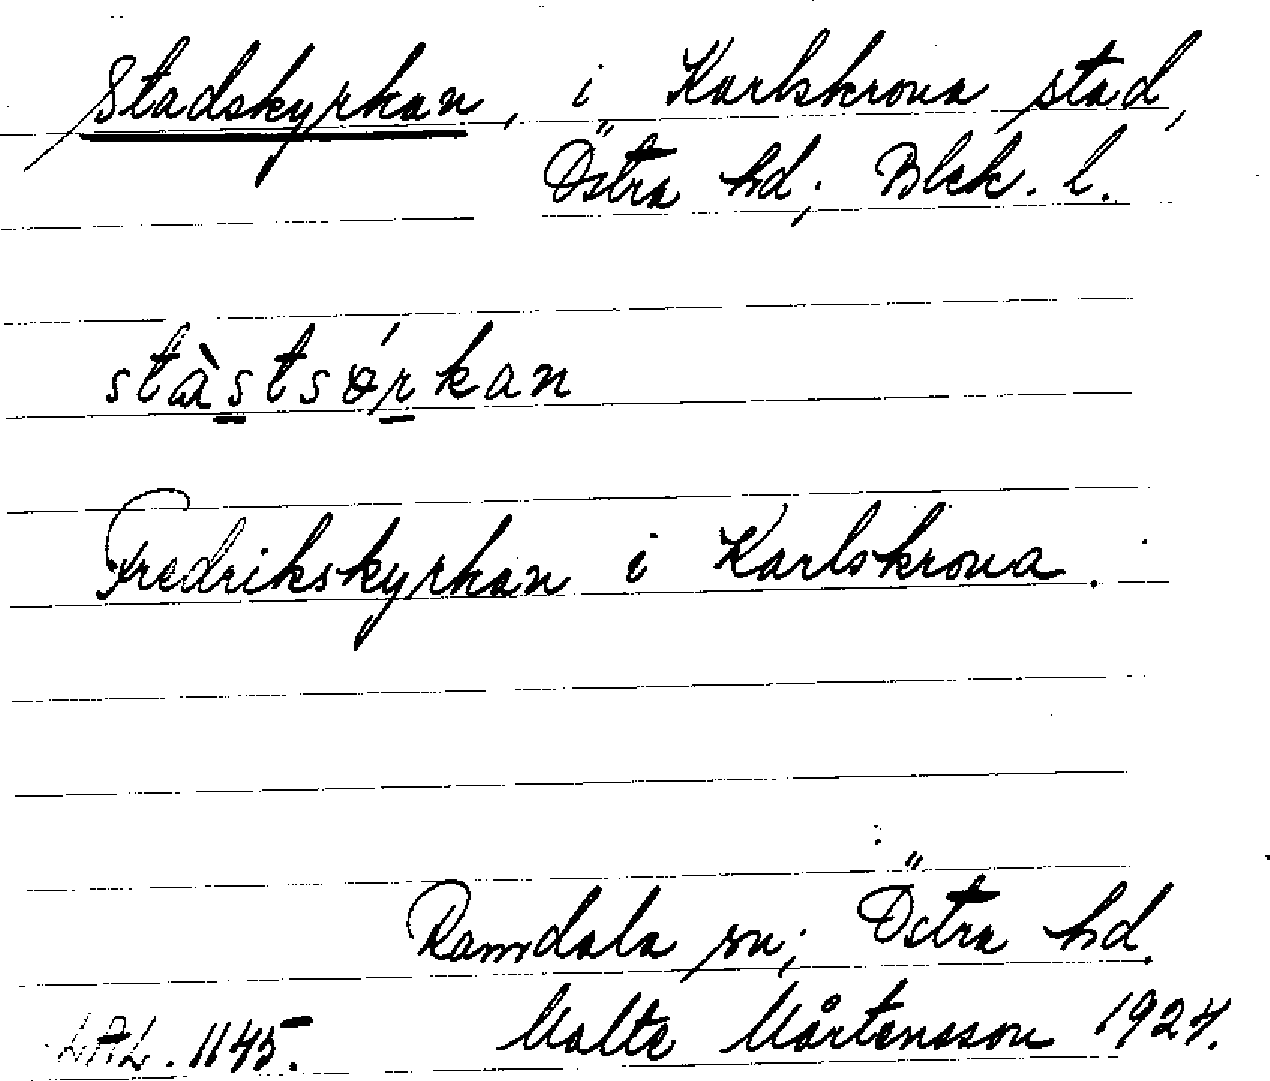 Stadskyrkan, i Karlskrona stad,
Östra hd; Blek. l.
stàstsǿrkan
Fredrikskyrkan i Karlskrona.
Ramdala sn; Östra hd.
LAL. 1145. Malte Mårtensson 1924.